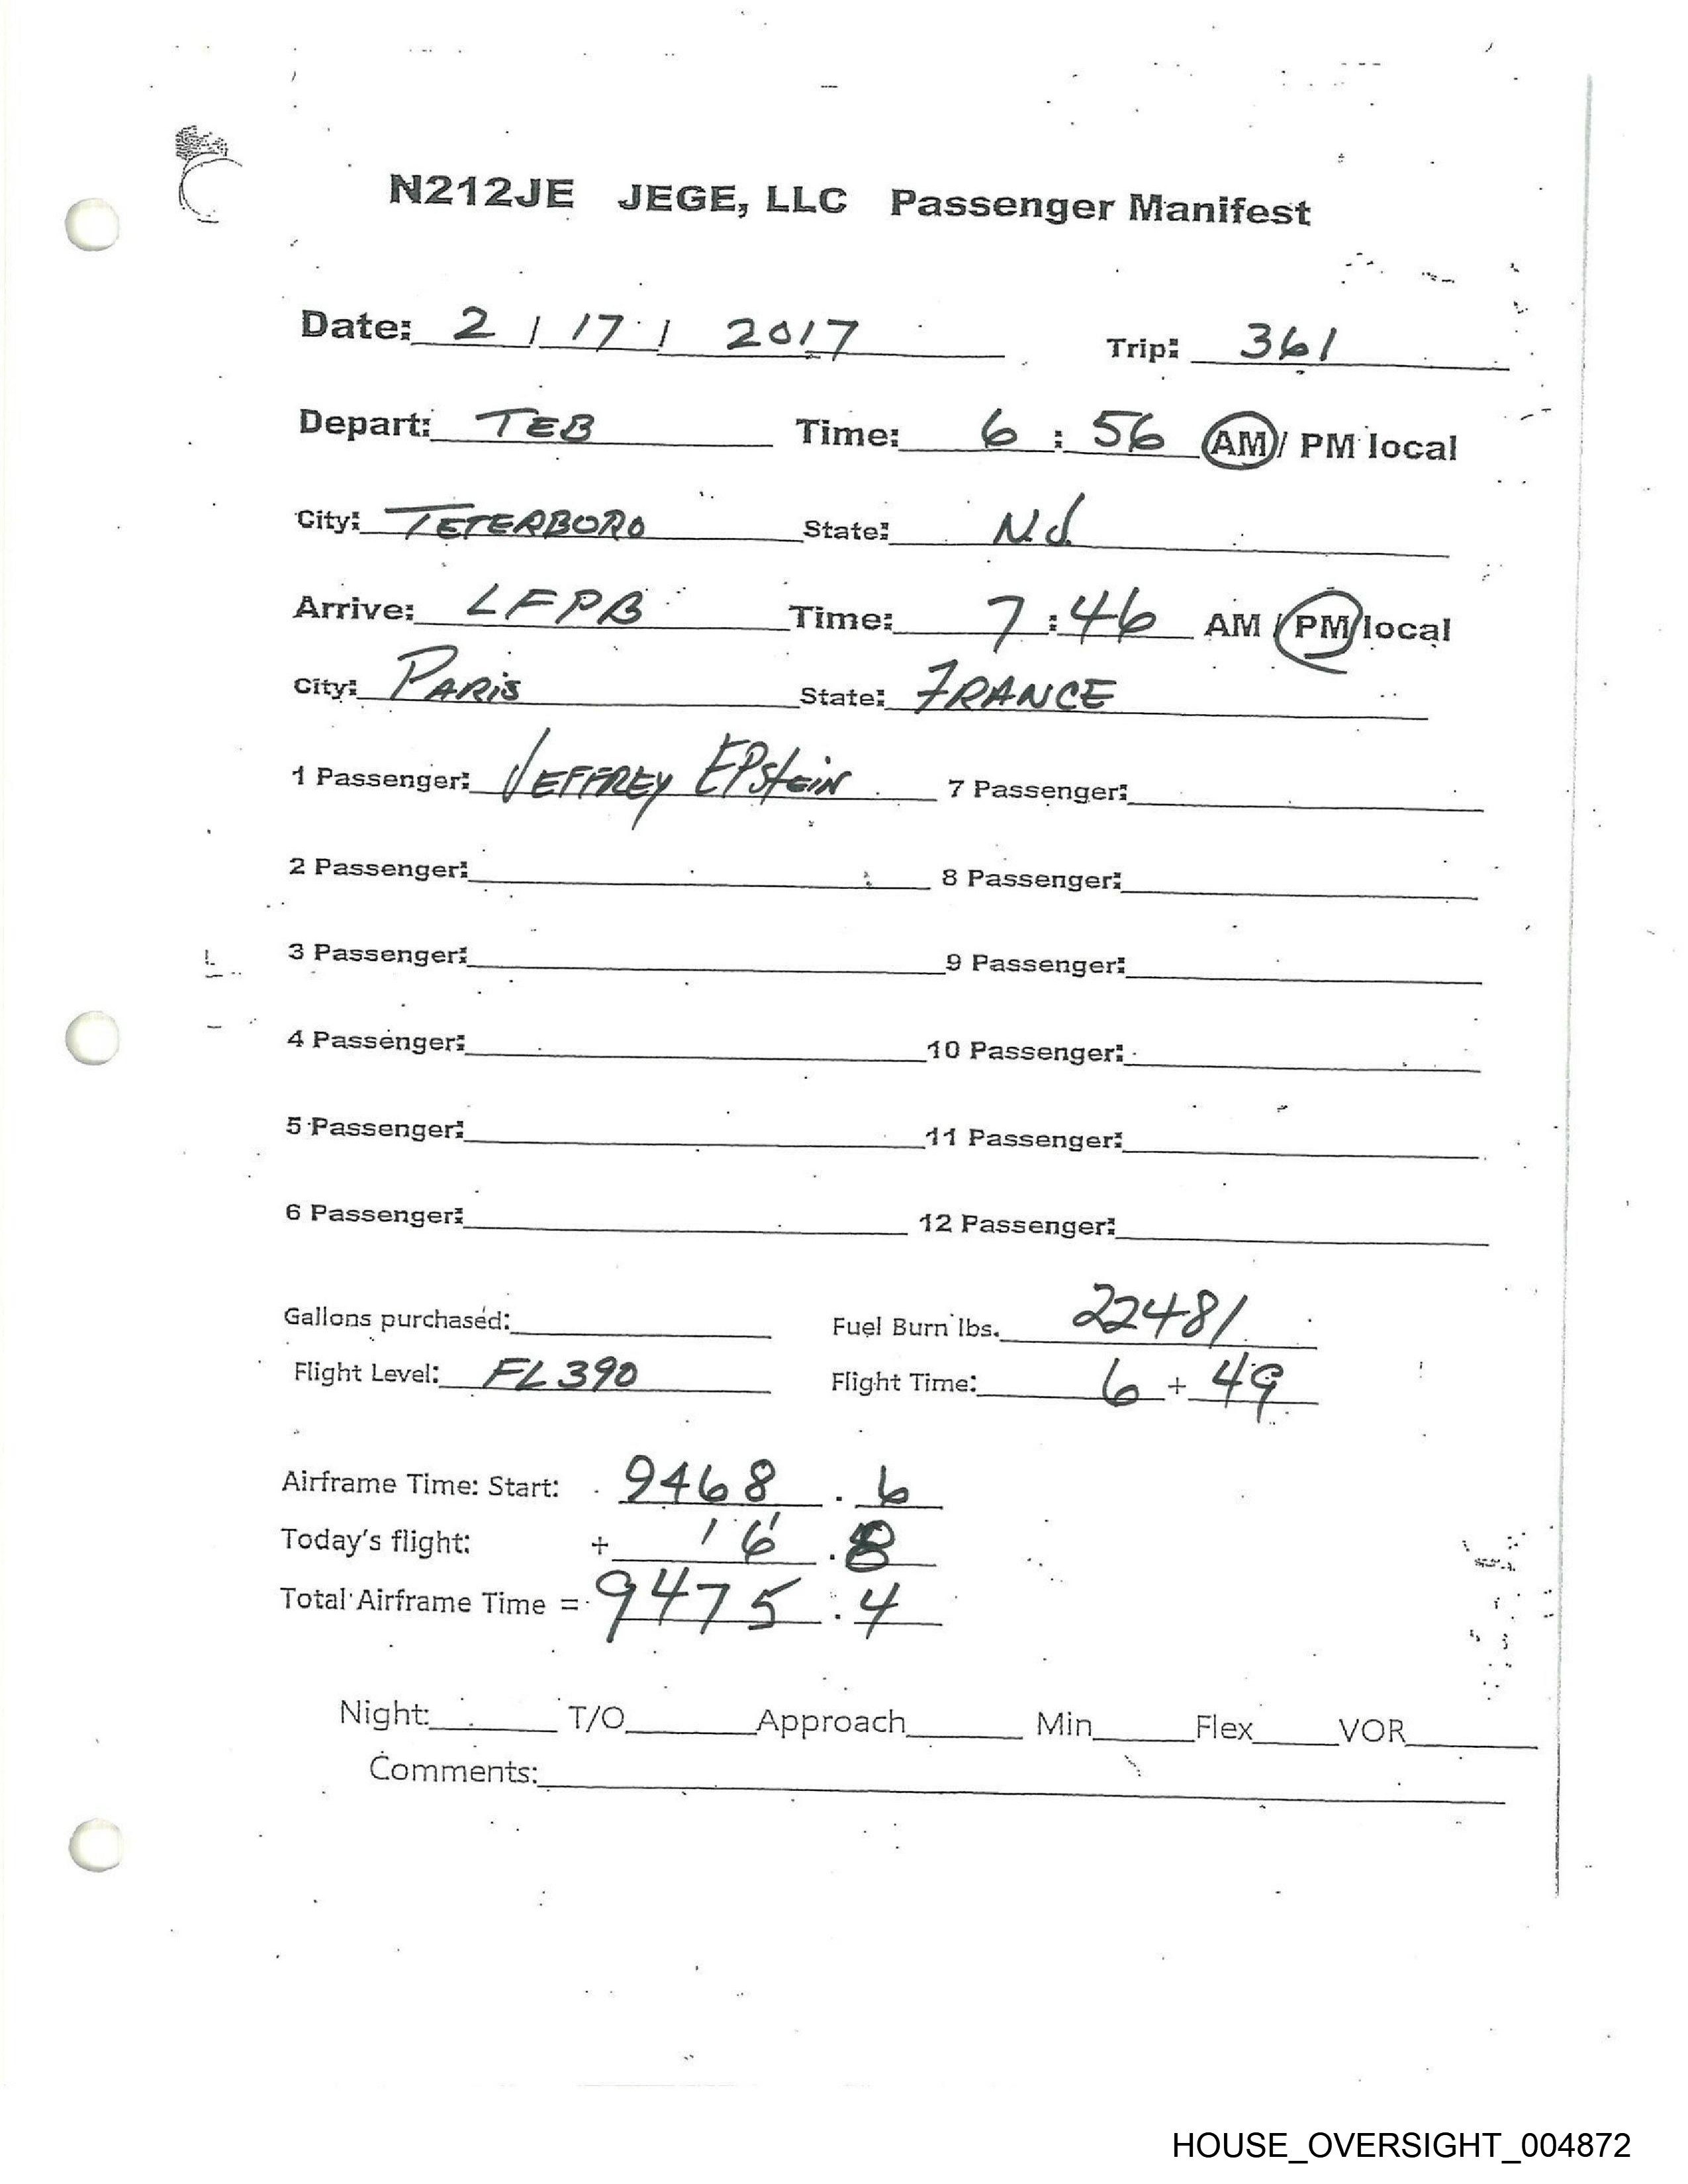 N212JE JEGE, LLC Passenger Manifest
Date: 2 / 17 / 2017 Trip: 361
Depart: TEB Time: 6 : 56 AM / PM local
City: TETERBORO State: N.J.
Arrive: LFPB Time: 7 : 46 AM / PM local
City: PARIS State: FRANCE
1 Passenger: JEFFREY EPStEIN 7 Passenger:
2 Passenger: 8 Passenger:
3 Passenger: 9 Passenger:
4 Passenger: 10 Passenger:
5 Passenger: 11 Passenger:
6 Passenger: 12 Passenger:
Gallons purchased: Fuel Burn lbs. 22481
Flight Level: FL 390 Flight Time: 6 + 49
Airframe Time: Start: 9468 . 6
Today's flight: + 6 . 8
Total Airframe Time = 9475 . 4
Night: T/O Approach Min Flex VOR
Comments:
HOUSE_OVERSIGHT_004872